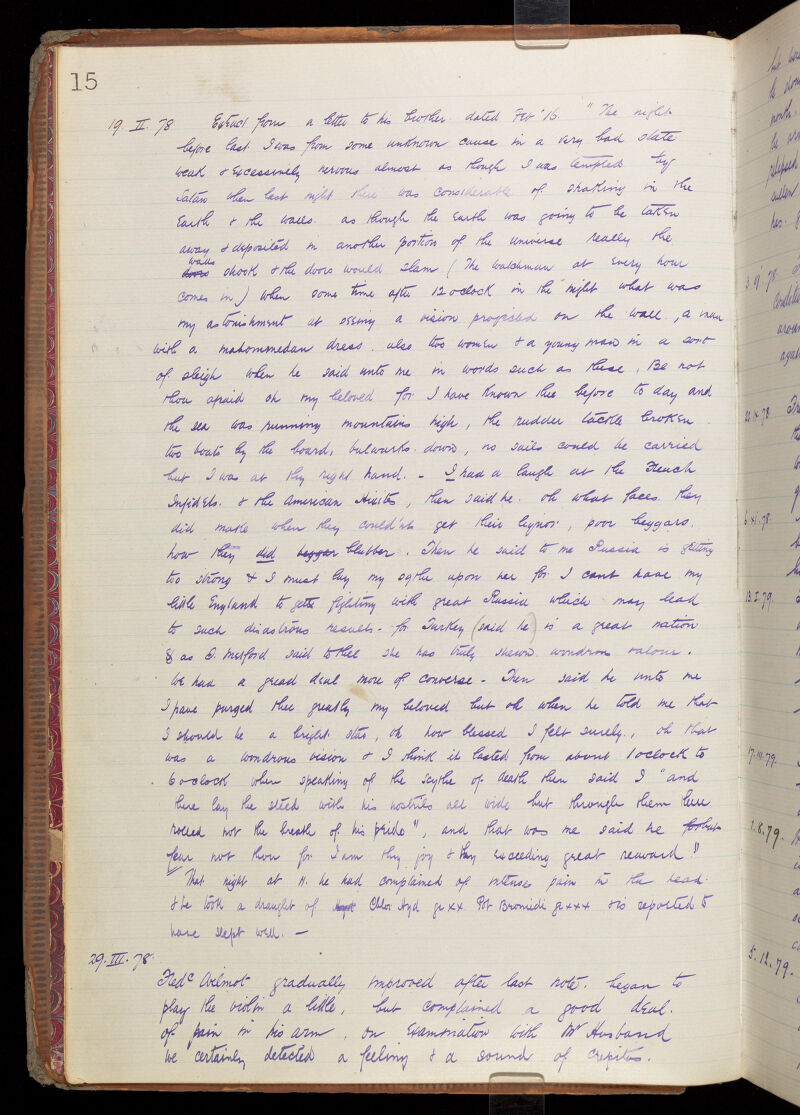 15
19. II. 78 Extract from a letter to his brother dated Feb' 16. "The night
before last I was from some unknown cause in a very bad state
weak & excessively nervous almost as though I was tempted by
Satan when last night there was considerable of shaking in the
Earth & the walls. as though the Earth was going to be taken
away & deposited in another portion of the universe really the
walls
doors shook & the doors would slam (The watchman at every hour
comes in) when some time after 12 oclock in the night what was
my astonishment at seeing a vision projected on the wall, a man
with a mahommedan dress. also two women & a young man in a sort
of sleigh when he said unto me in words such as these, Be not
thou afraid oh my beloved for I have known thee before to day and
the sea was running mountains high, the rudder tackle broken
two boats by the board, bulwarks down, no sails could be carried
but I was at thy right hand. - I had a laugh at the French
Infidels. & the American, then said he. oh what faces they
did make when they could'nt get their, poor beggars.
how they did beggar blubber. Then he said to me Russia is getting
too strong & I must lay my sythe upon her for I cant have my
little England to gette fighting with great Russia which may lead
to such disastrous results - for Turkey (said he) is a great nation
& as S. said to thee she has truly shewn wondrous valour.
We had a gread deal more of converse - Then said he unto me
I have purged thee greatly my beloved but oh when he told me that
I should be a bright star, oh how blessed I felt surely, oh that
was a wondrous vision & I think it lasted from about 1 oclock to
6 oclock when speaking of the scythe of death then said I "and
there lay the steed with his nostrils all wide but through them there
rolled not the breath of his pride", and that was me said he
fear not thou for I am thy joy & thy exceeding great reward"
That night at 11. he had complained of intense pain in the head.
& he took a draught of Chlor. Hyd gr xx. Pot Bromidi gr xxx & is reported to
have slept well. —
29. III. 78. Fredc Wilmot gradually improved after last note. began to
play the violin a little, but complained a good deal.
of pain in his arm, on examination with Mr Husband
we certainly detected a feeling & a sound of crepitus.